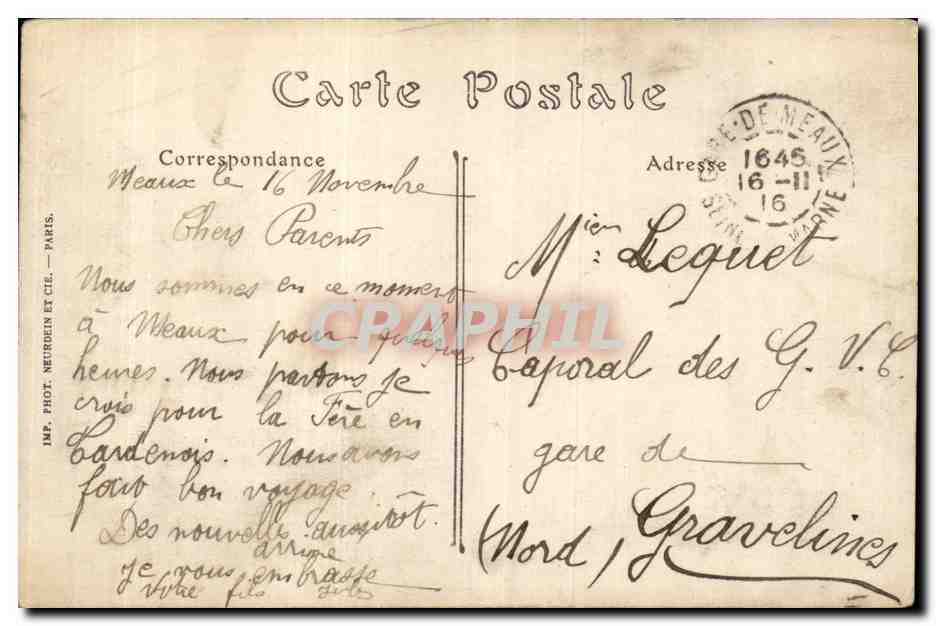 Carte Postale
Correspondance
Meaux le 16 Novembre
Chers Parents
Nous sommes en ce moment
à Meaux pour quelques
heures. Nous partons je
crois pour la Fère en
Tardenois. Nous avons
fait bon voyage.
Des nouvelles aussitôt
arrivé
Je vous embrasse
Votre fils
Adresse
GARE DE MEAUX
1645
16 -11
16
SEINE MARNE
Mr Lequet
Caporal des G. V. C.
gare de
Gravelines
(Nord)
IMP. PHOT. NEURDEIN ET CIE. — PARIS.
CPAPHIL